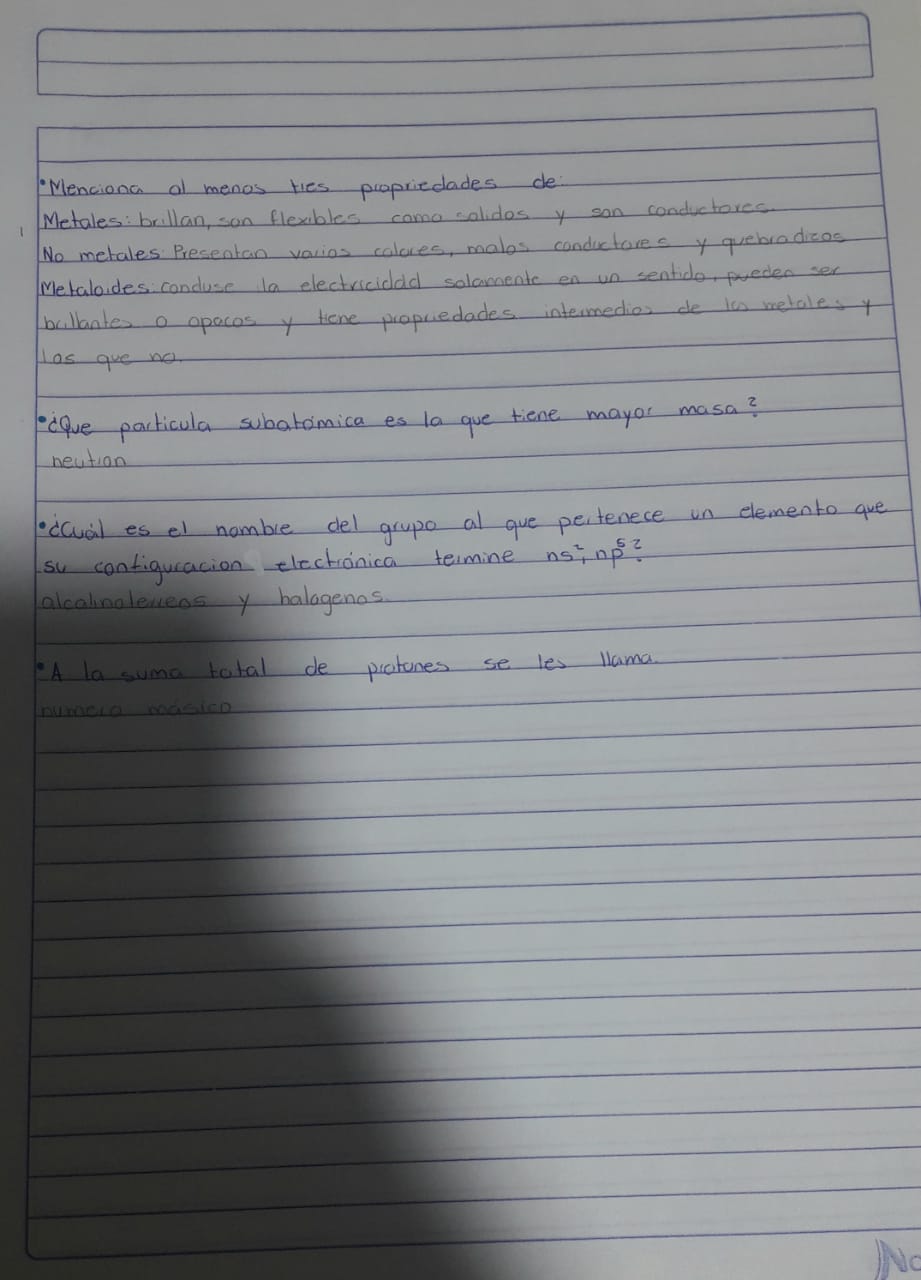 •Menciona al menos tres propiedades de:
Metales: brillan, son flexibles como solidos y son conductores.
No metales: Presentan varios colores, malos conductores y quebradizos
Metaloides: conduse la electricidad solamente en un sentido, pueden ser
brillantes o opacos y tiene propiedades intermedios de los metales y
los que no.
•¿Que particula subatómica es la que tiene mayor masa?
neutron
•¿Cuál es el nombre del grupo al que pertenece un elemento que
su configuracion electrónica termine ns², np⁵?
alcalinoterreos y halogenos.
•A la suma total de protones se les llama.
numero másico
No